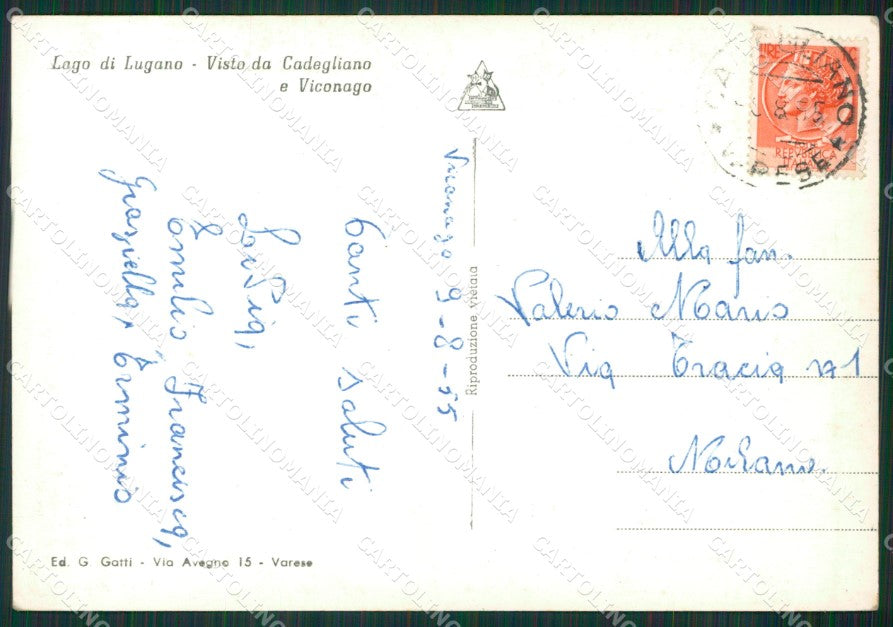 Lago di Lugano - Vista da Cadegliano
e Viconago
Viconago 9-8-55
Tanti saluti
Livia,
Emilio, Francisca,
Graziella, Erminio
Riproduzione Vietata
Alla fam.
Valerio Mario
Via Tracia n 1
Ed. G. Gatti - Via Avegno 15 - Varese
LIRE
REPVBBLICA
VARESE
CARTOLINOMANIA